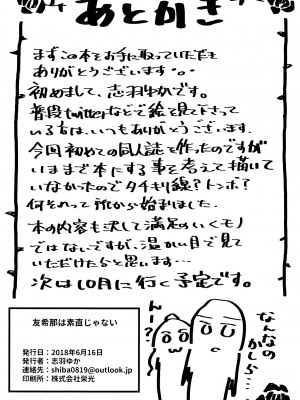 あとがき
まずこの本をお手に取っていただき
ありがとうございます。
初めまして、志羽ゆかです。
普段twitterなどで絵を見て下さって
いる方は、いつもありがとうございます。
今回初めての同人誌を作ったのですが
いままで本にする事を考えて描いて
いなかったのでタチキリ線？トンボ？
何それって所から始まりました。
本の内容も決して満足のいくモノ
ではないですが、温かい目で見て
いただけたらと思います…
次は10月に行く予定です。
友希那は素直じゃない
発行日：2018年6月16日
発行者：志羽ゆか
連絡先：shiba0819@outlook.jp
印刷所：株式会社栄光
んー？
なんなの
かしら…